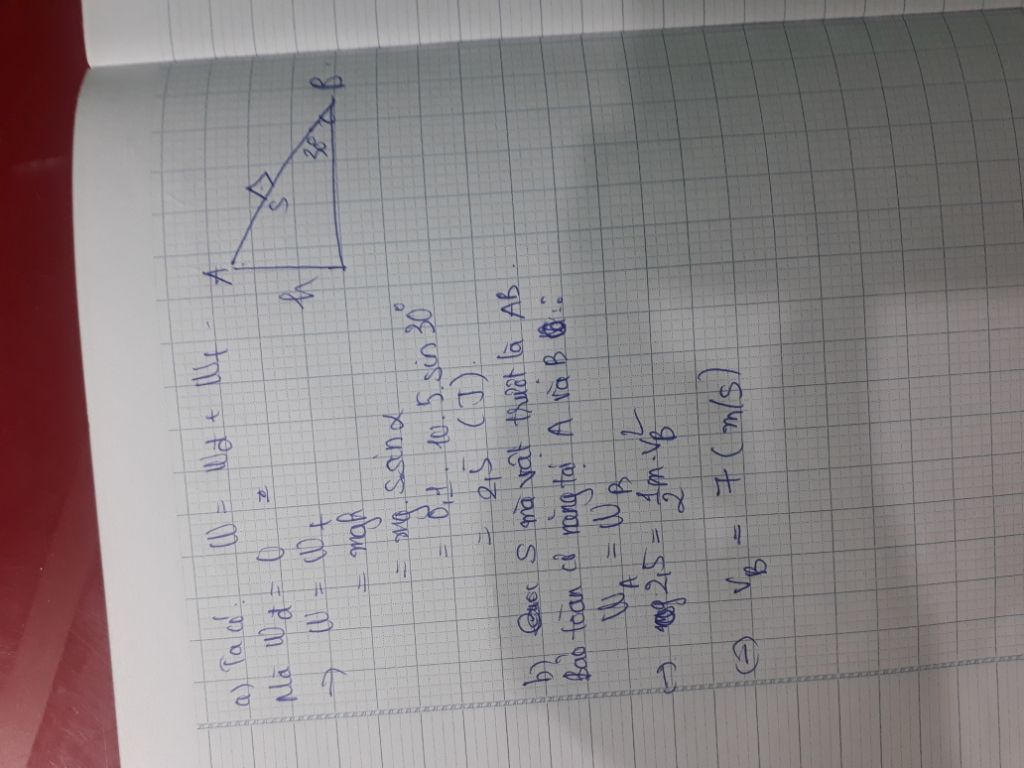 a) Ta có: W = Wđ + Wt.
Mà Wđ = 0
→ W = Wt
= mgh
= mg.S.sin α
= 0,1.10.5.sin 30°
= 2,5 (J).
A
h
S
30°
B
b) S mà vật trượt là AB.
Bảo toàn cơ năng tại A và B:
W_A = W_B
(-) 2,5 = 1/2 m.v_B²
(=) v_B = 7 (m/s)